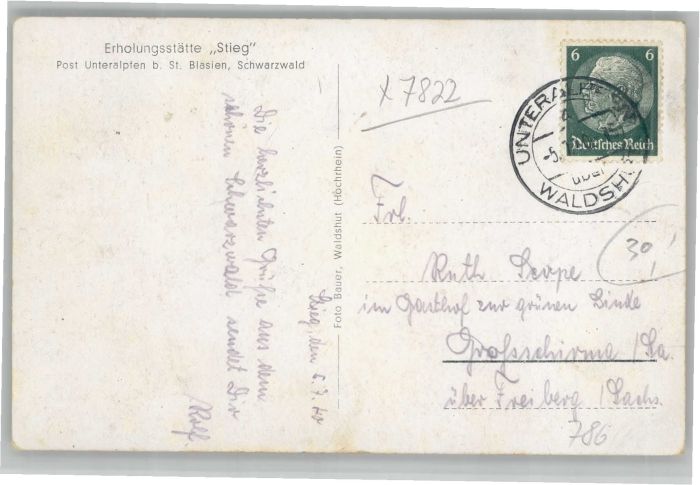 Erholungsstätte „Stieg"
Post Unteralpfen b. St. Blasien, Schwarzwald
Stieg, den 5.7.40
Die herzlichsten Grüße aus dem
schönen Schwarzwald sendet Dir
Rolf.
Foto Bauer, Waldshut (Hochrhein)
x 7822
6 6
Deutsches Reich
UNTERALPFEN
-5.
über
WALDSHUT
Frl.
Ruth
im Gasthof zur grünen Linde
Grossschirma /Sa.
über Freiberg /Sachs.
30,
786